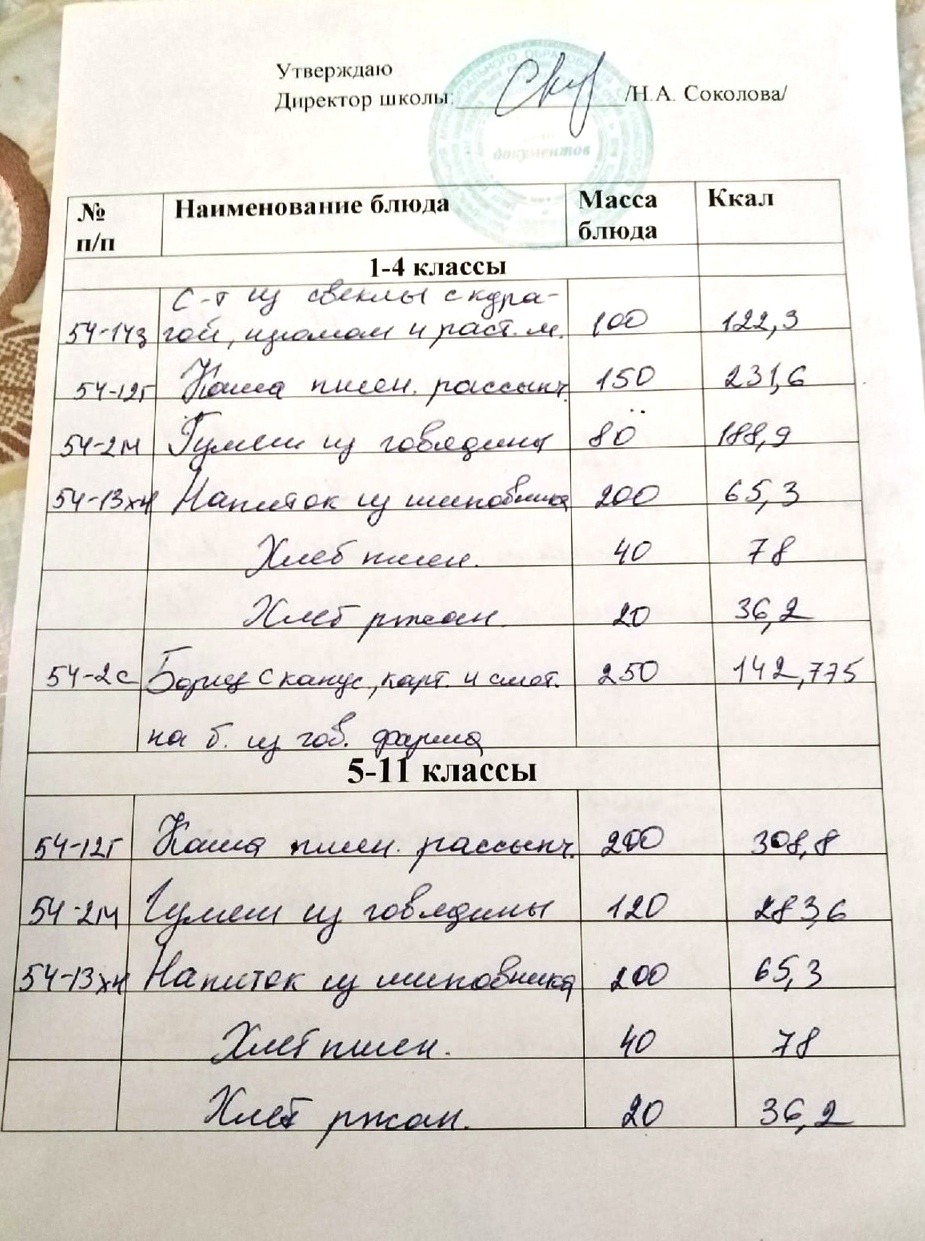 Утверждаю
Директор школы: /Н.А. Соколова/
документов
№ п/п Наименование блюда Масса блюда Ккал
1-4 классы
С-т из свеклы с кура-
54-14з гой, изюмом и раст. м. 100 122,3
54-12г Каша пшен. рассыпч. 150 231,6
54-2м Гуляш из говядины 80 188,9
54-13хн Напиток из шиповника 200 65,3
Хлеб пшен. 40 78
Хлеб ржан. 20 36,2
54-2с Борщ с капус, карт. и смет. 250 142,775
на б. из гов. фарша
5-11 классы
54-12г Каша пшен. рассыпч. 200 308,8
54-2м Гуляш из говядины 120 283,6
54-13хн Напиток из шиповника 200 65,3
Хлеб пшен. 40 78
Хлеб ржан. 20 36,2